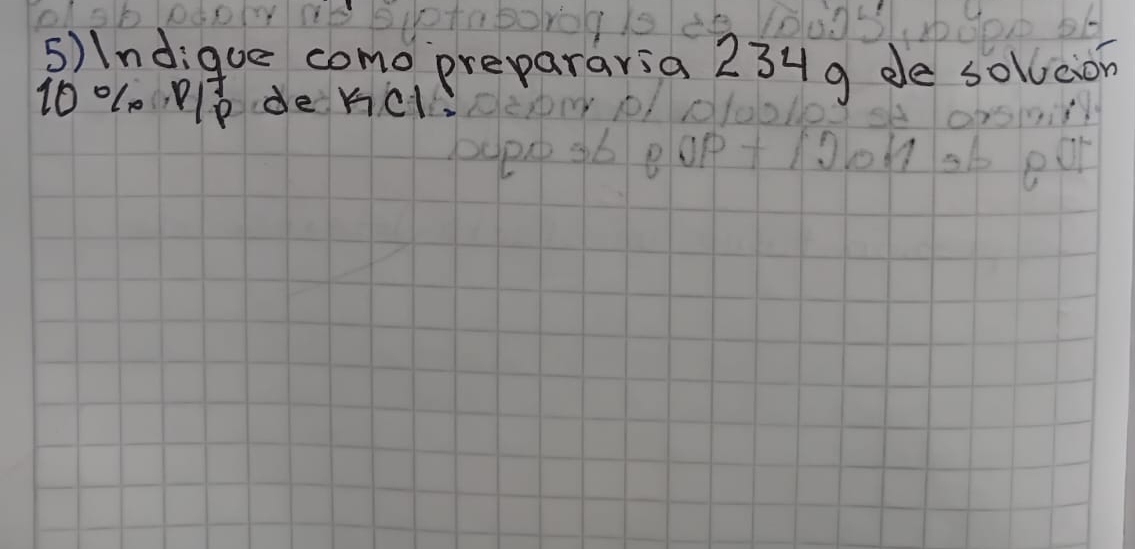 5) Indique como prepararia 234 g de solución
10 % P/p de KCl.